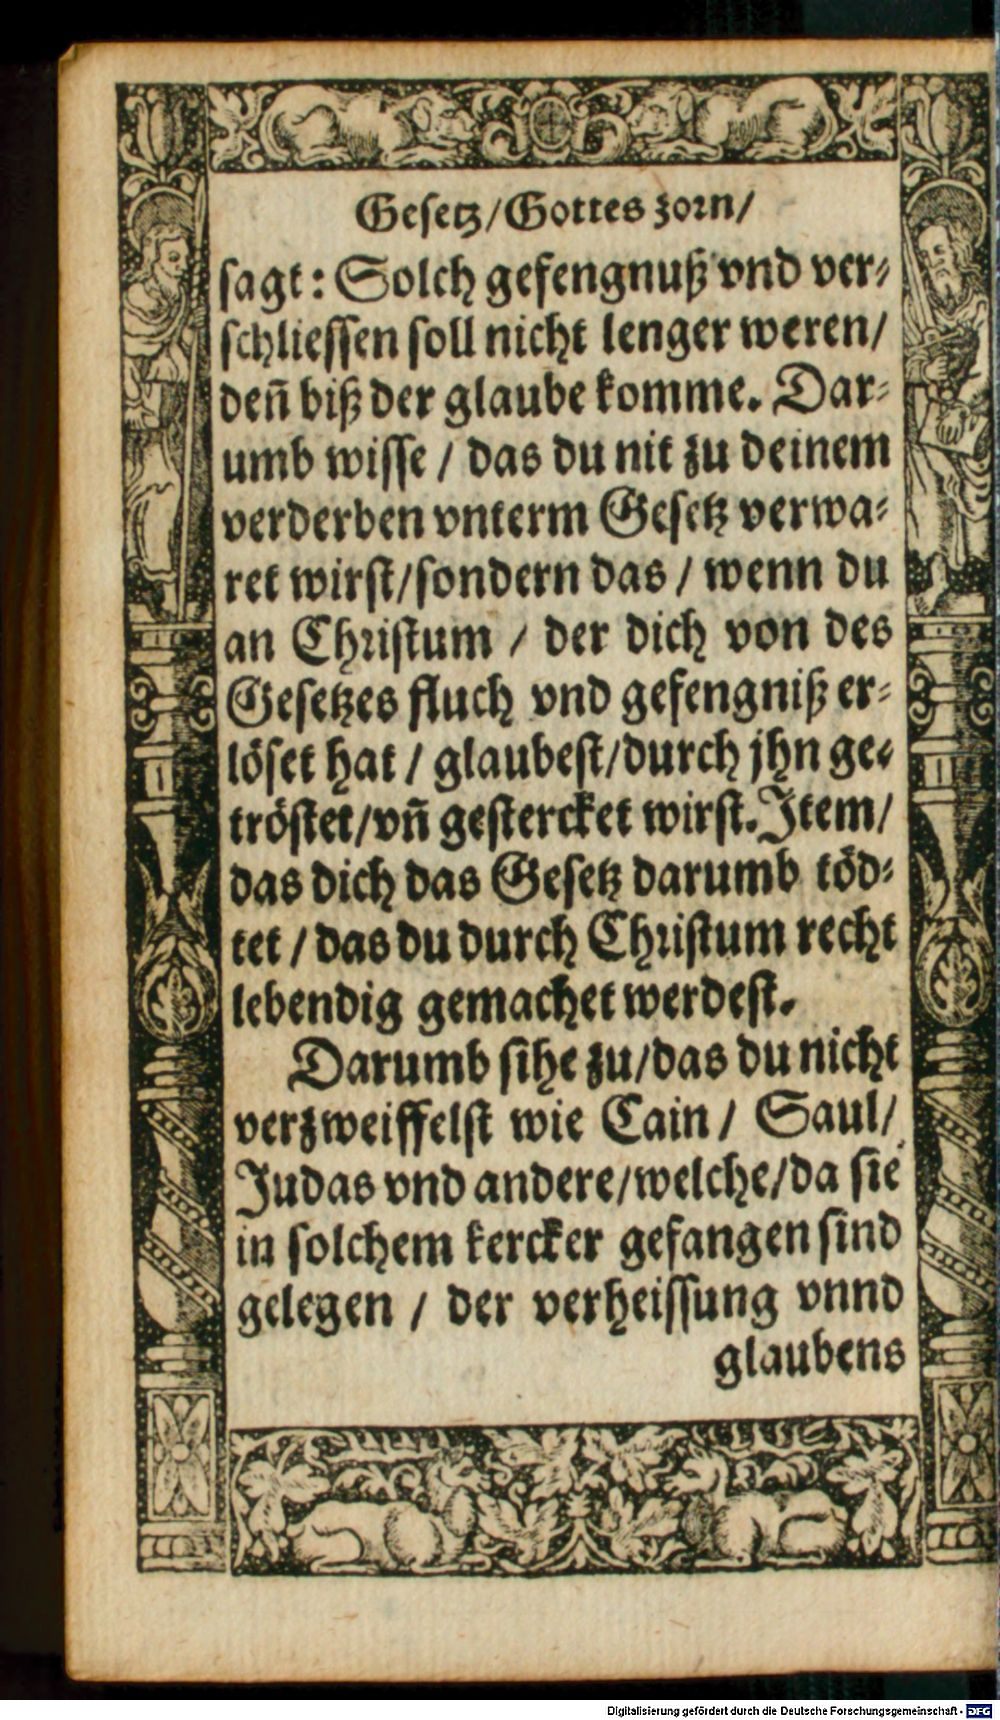 Gesetz/Gottes zorn/
sagt: Solch gefengnuß vnd ver-
schliessen soll nicht lenger weren/
deñ biß der glaube komme. Dar-
umb wisse / das du nit zu deinem
verderben vnterm Gesetz verwa-
ret wirst/sondern das / wenn du
an Christum / der dich von des
Gesetzes fluch vnd gefengniß er-
löset hat / glaubest/durch jhn ge-
tröstet/vñ gestercket wirst. Item/
das dich das Gesetz darumb töd-
tet / das du durch Christum recht
lebendig gemachet werdest.
Darumb sihe zu/das du nicht
verzweiffelst wie Cain / Saul/
Judas vnd andere/welche/da sie
in solchem kercker gefangen sind
gelegen / der verheissung vnnd
glaubens
Digitalisierung gefördert durch die Deutsche Forschungsgemeinschaft - DFG